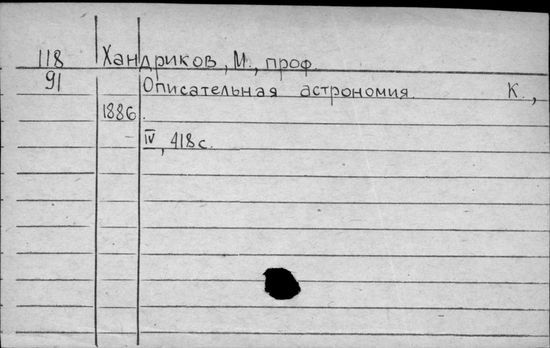 118 Хандриков, М., проф.
91 Описательная астрономия. К.,
1886.
IV, 418 с.